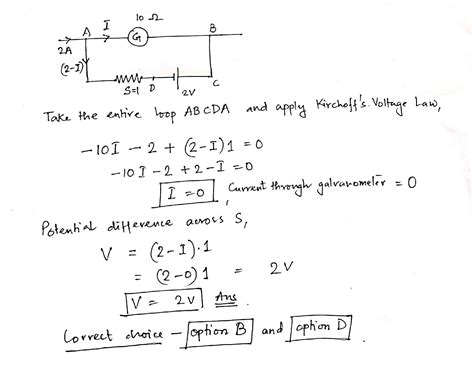 10 Ω
A I G B
2A
(2-I)
S=1 D 2V C
Take the entire loop ABCDA and apply Kirchoff's Voltage Law,
-10I - 2 + (2-I)1 = 0
-10I - 2 + 2 - I = 0
I = 0 , Current through galvanometer = 0
Potential difference across S,
V = (2-I)·1
= (2-0)1 = 2V
V = 2V Ans.
Correct choice - option B and option D.